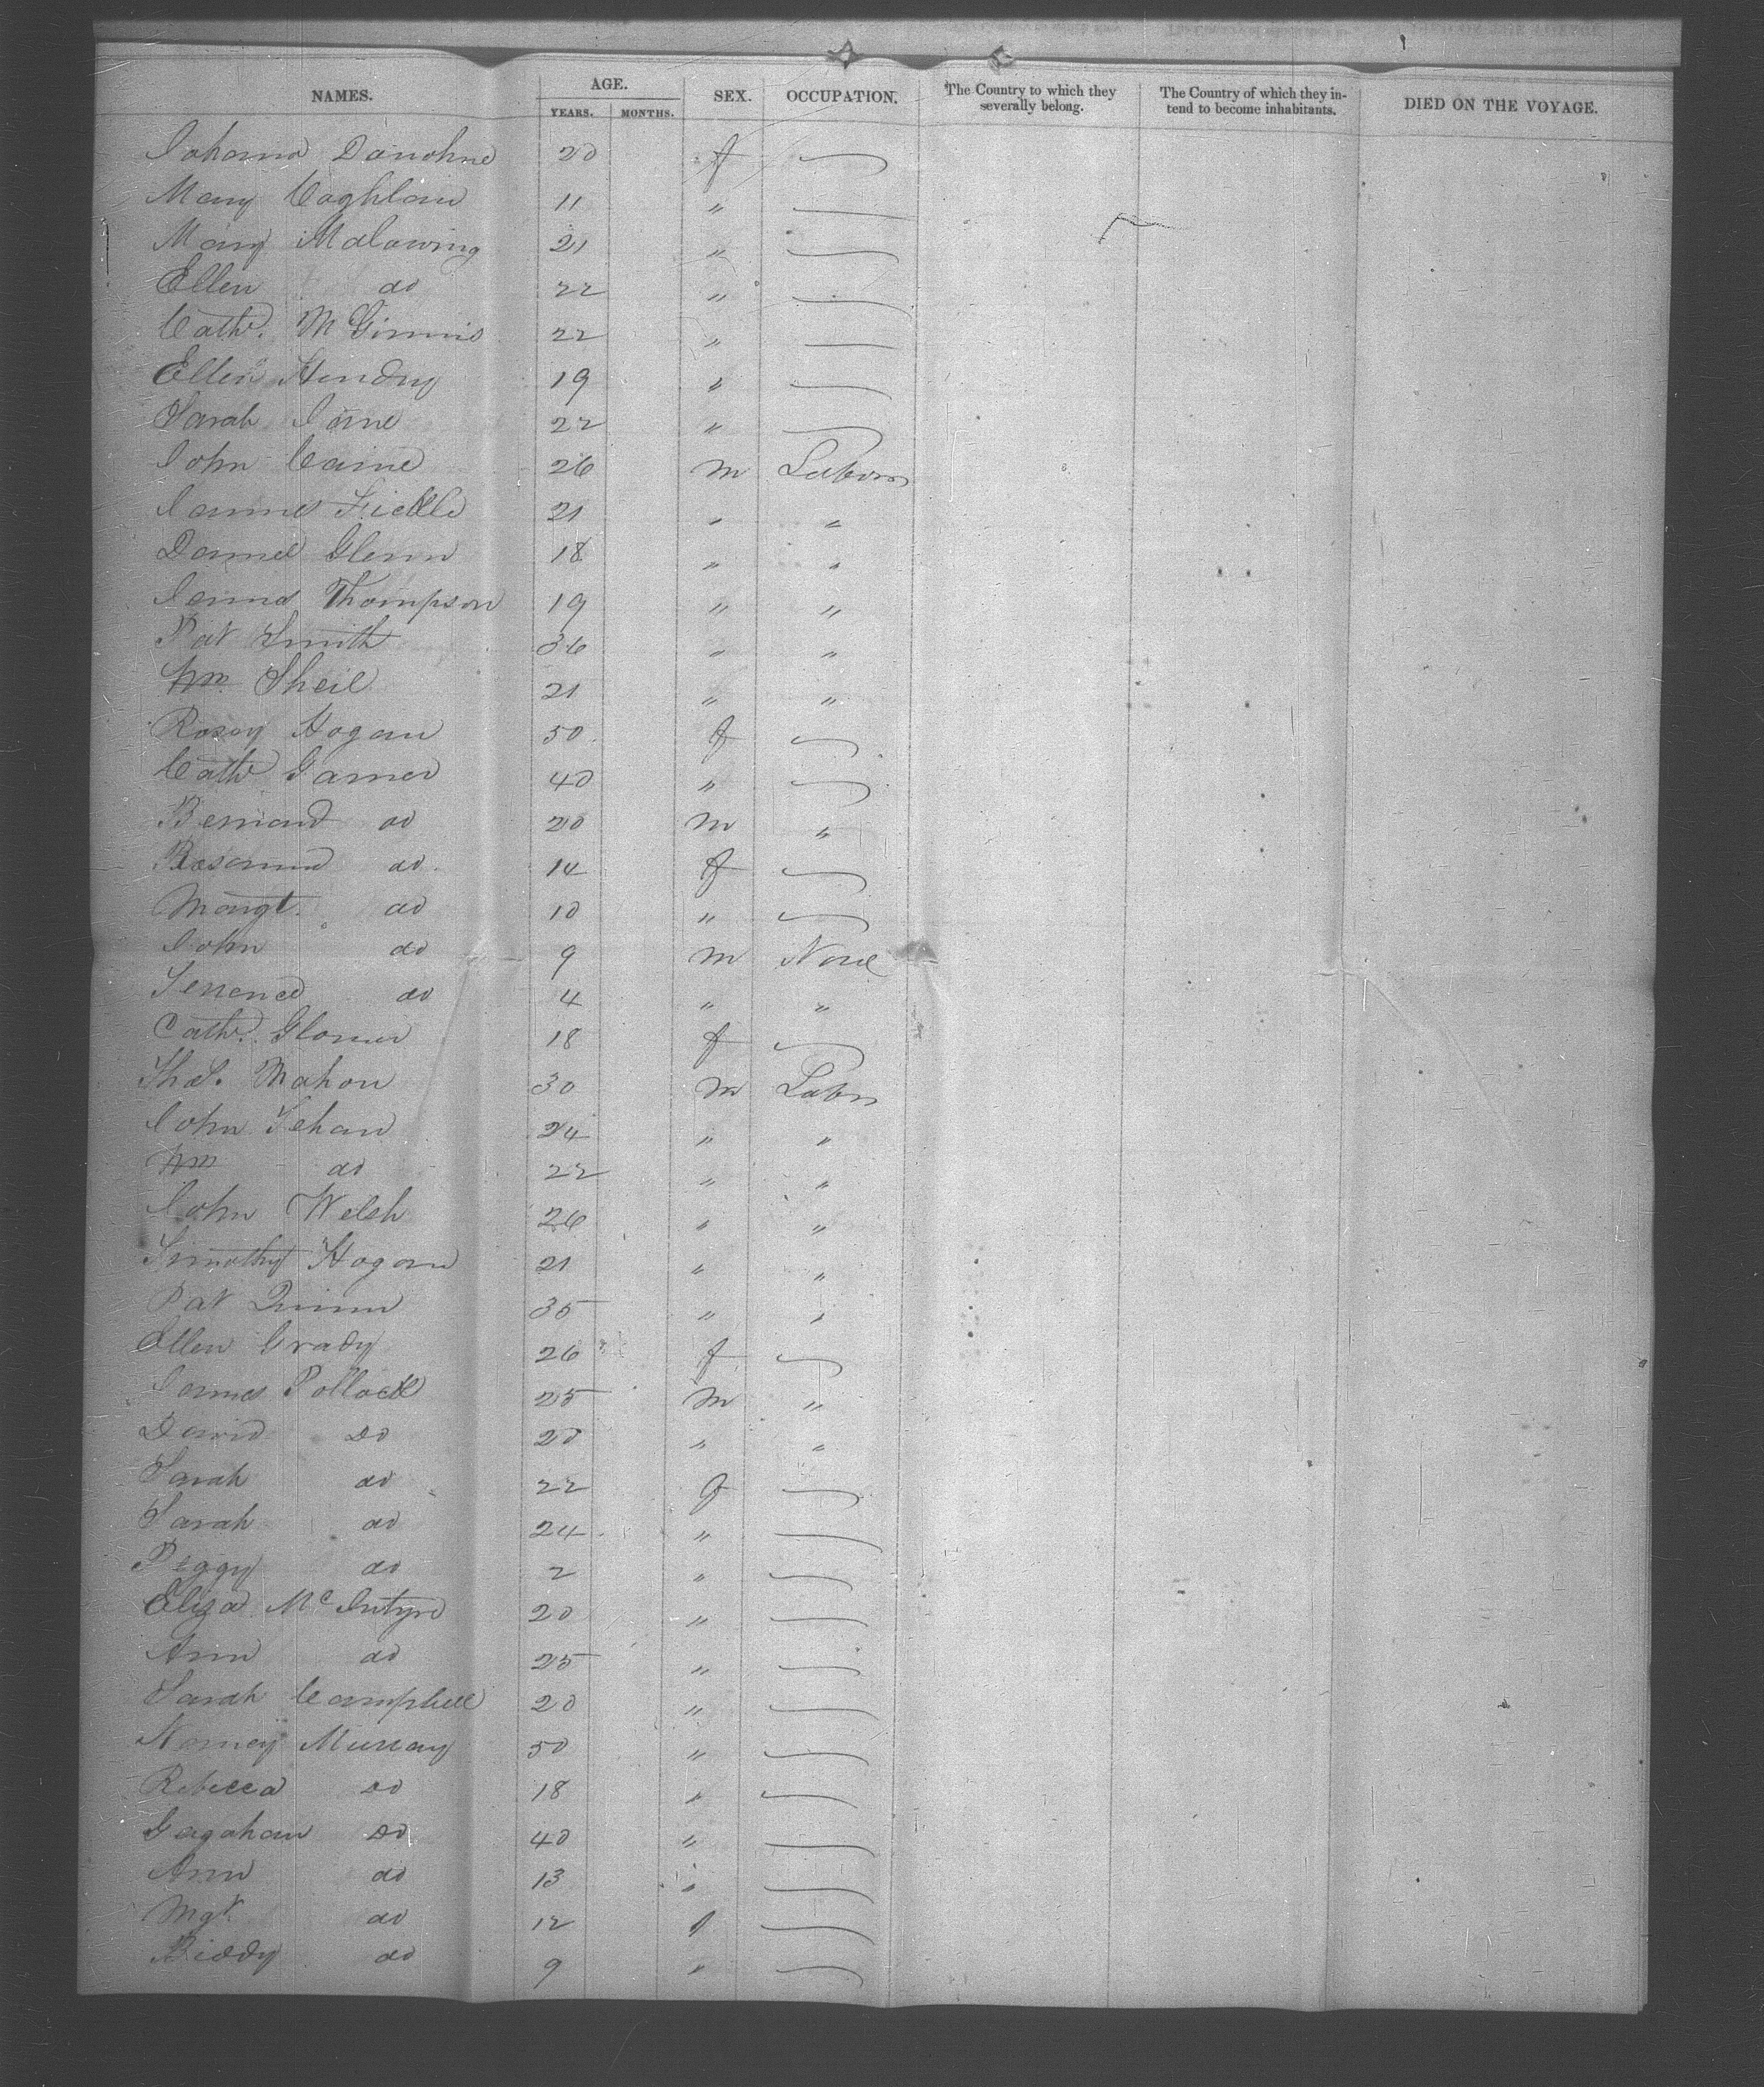 NAMES. AGE. SEX. OCCUPATION. The Country to which they severally belong. The Country of which they in- tend to become inhabitants. DIED ON THE VOYAGE.
YEARS. MONTHS.
Johanna Donohue 20 f
Mary Coghlan 11 "
Mary 21 "
Ellen do 22 "
Cathe. McGinnis 22 "
Ellen Hendry 19 "
Sarah 22 "
John Caine 26 m Labour
James 21 " "
Daniel Glenn 18 " "
James Thompson 19 " "
Pat Smith 36 " "
Wm. Sheil 21 " "
Rosey Hogan 50 f
Cathe 40 "
Bernard do 20 m "
Rosanna do 14 f
Margt. do 10 "
John do 9 m None
Terence do 4 " "
Cathe. 18 f
Thos. Mahon 30 m Labr
John Tehan 24 " "
Wm do 22 " "
John Welsh 26 " "
Timothy Hogan 21 " "
Pat Quinn 35 " "
Ellen Grady 26 f
James Pollock 25 m "
David Do 20 " "
Sarah do 22 f
Sarah do 24 "
Peggy do 2 "
Eliza McIntyre 20 "
Ann do 25 "
Sarah Campbell 20 "
Nancy Murray 50 "
Rebecca do 18 "
do 40 "
Ann do 13 "
Mgt. do 12 "
Biddy do 9 "